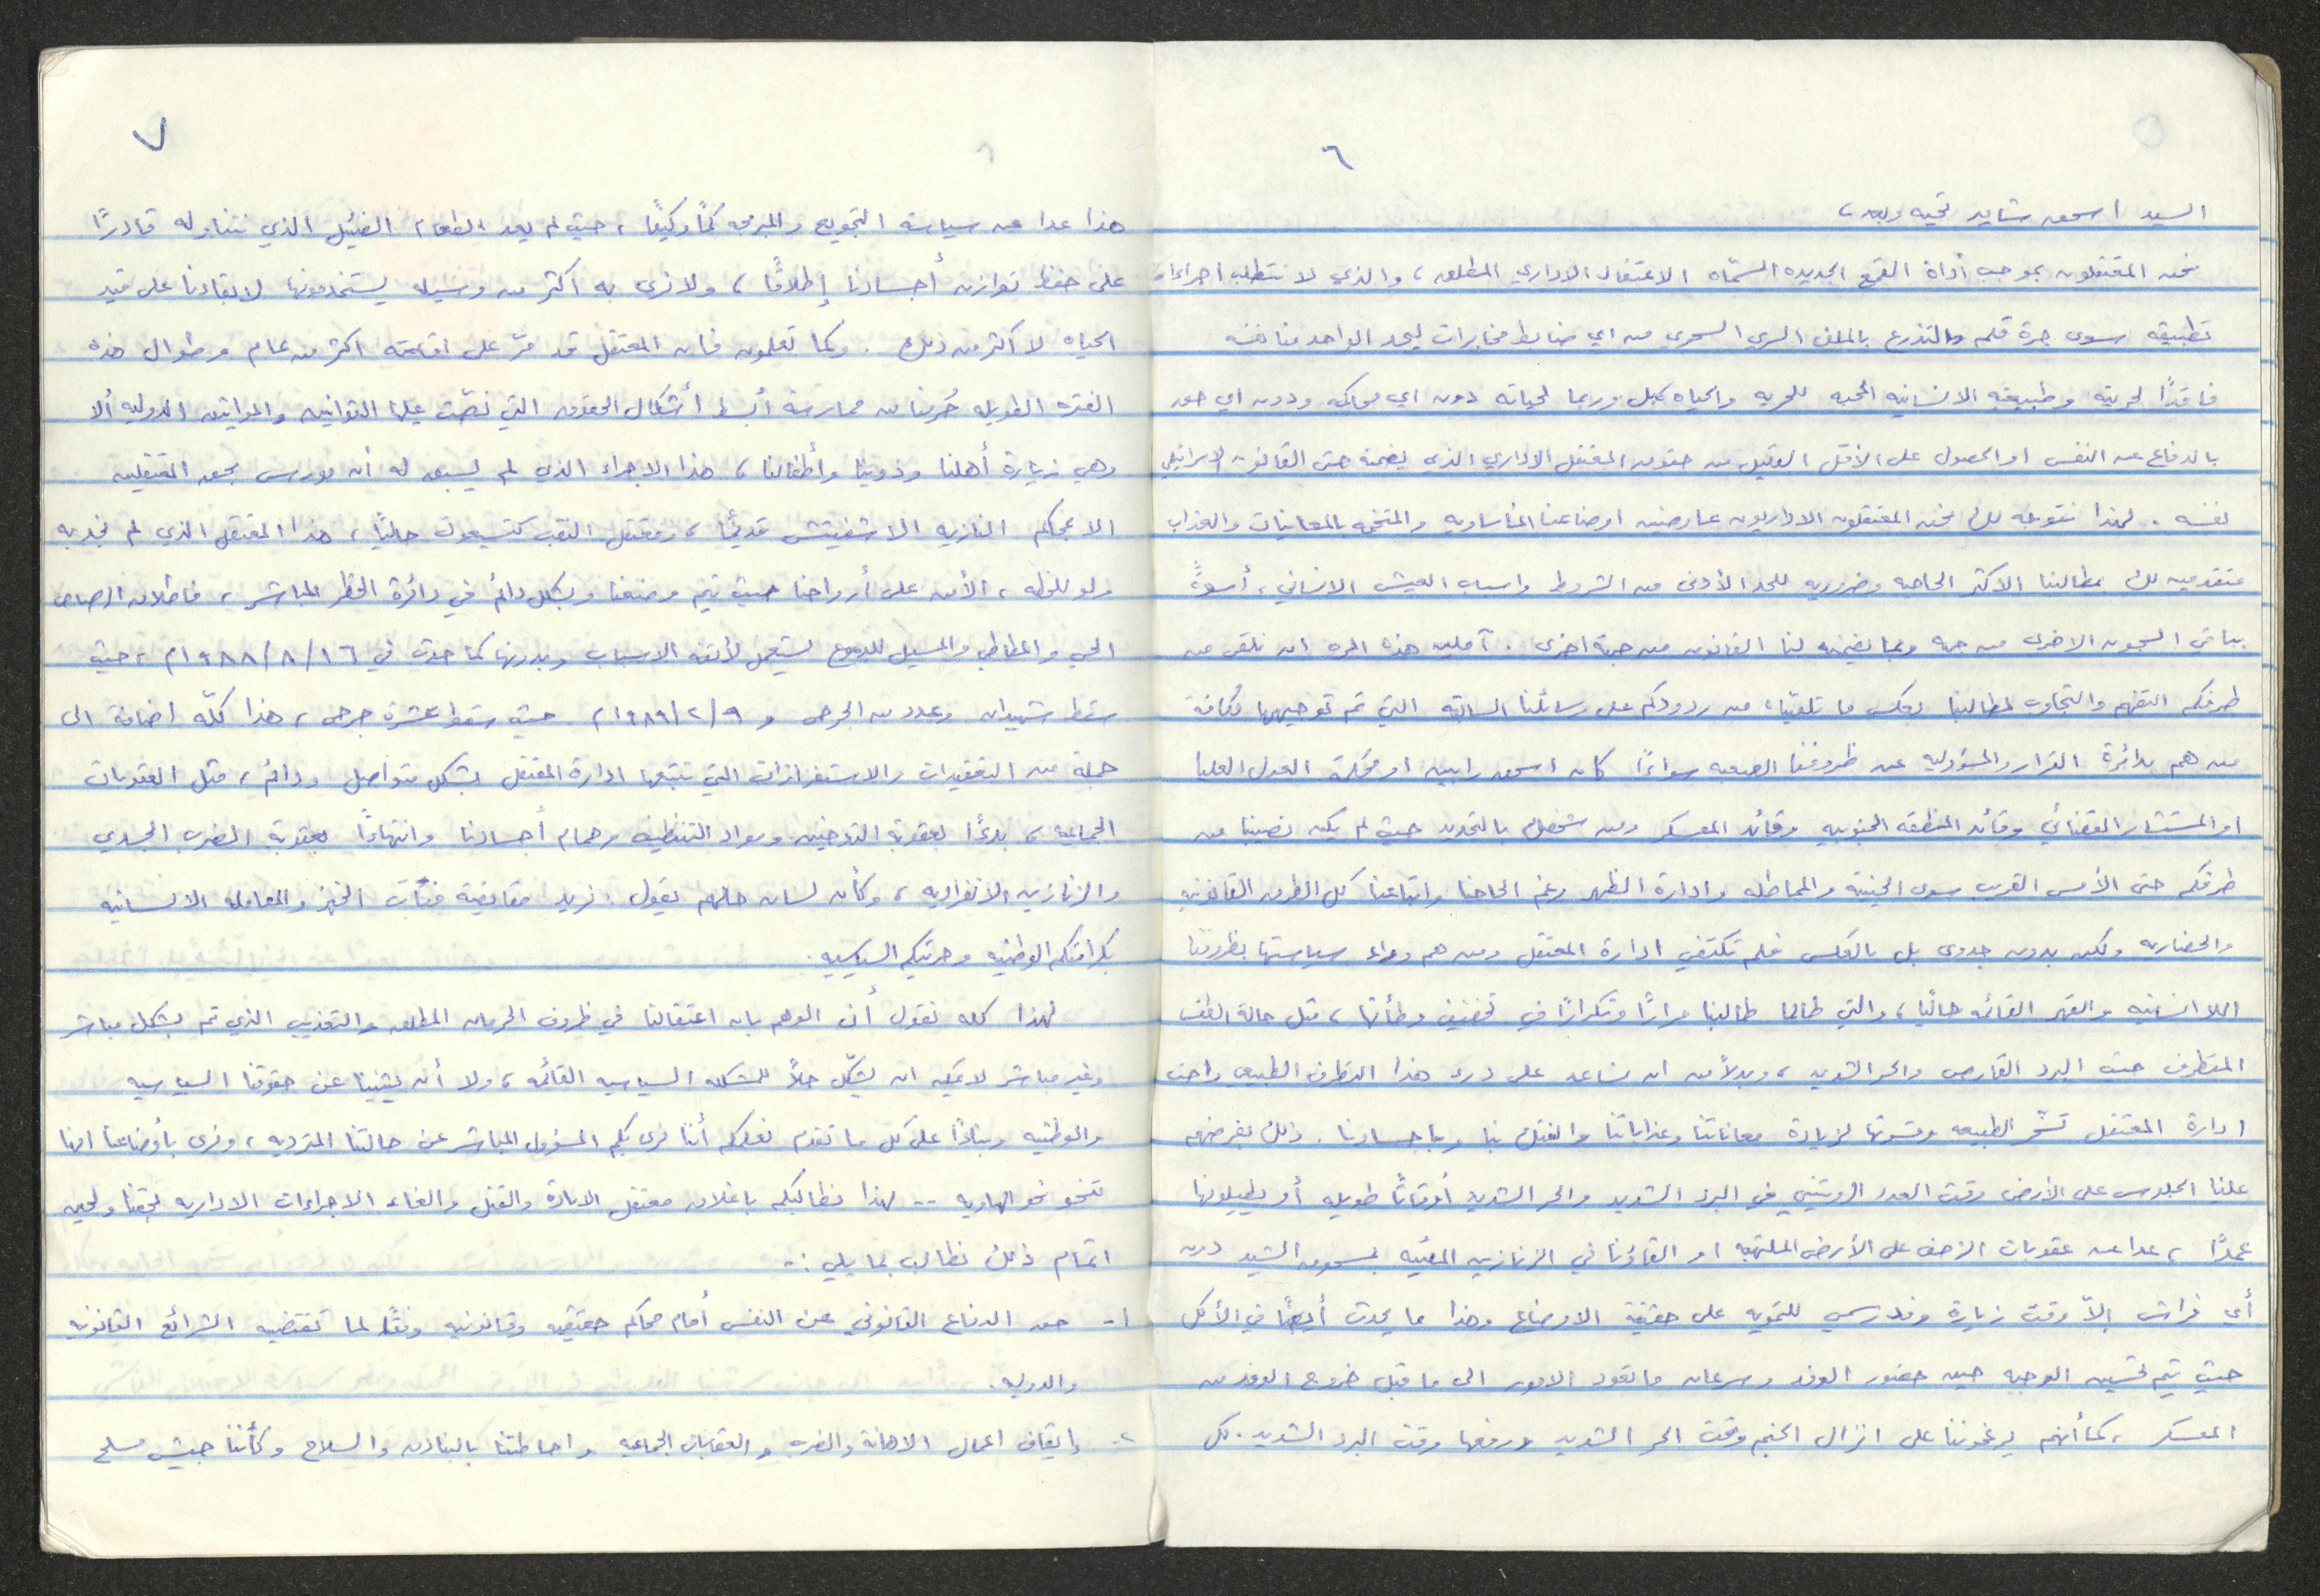 ٦
السيد اسحق شامير تحيه وبعد،
نحن المعتقلون بموجب أداة القمع الجديده المسمّاه الاعتقال الاداري المطلق، والذي لا تتطلب اجراءات
تطبيقه سوى جرة قلم والتذرع بالملف السري السحري من اي ضابط مخابرات ليجد الواحد منا نفسه
فاقدًا لحريته وطبيعته الانسانيه المحبه للحريه والحياه ككل وربما لحياته دون اي محاكمه ودون اي حق
بالدفاع عن النفس او الحصول على الأقل القليل من حقوق المعتقل الاداري الذي يضمنه حتى القانون الاسرائيلي
نفسه. لهذا نتوجه لك نحن المعتقلون الاداريون عارضين اوضاعنا المأساويه والمتخمه بالمعانيات والعذاب
متقدمين لك بمطالبنا الاكثر الحاحيه وضروريه للحد الأدنى من الشروط واسباب العيش الانساني، أسوةً
بباقي السجون الاخرى من جهه وبما يضمنه لنا القانون من جهة اخرى. آملين هذه المره ان نلقى من
طرفكم التفهم والتجاوب لمطالبنا بعكس ما تلقيناه من ردودكم على رسائلنا السابقه التي تم توجيهها لكافة
من هم بدائرة القرار والمسؤوليه عن ظروفنا الصعبه سواءًا كان اسحق رابين او محكمة العدل العليا
او المستشار القضائي وقائد المنطقه الجنوبيه وقائد المعسكر ومن شخصك بالتحديد حيث لم يكن نصيبنا من
طرفكم حتى الأمس القريب سوى الخيبة والمماطله وادارة الظهر رغم الحاحنا واتباعنا كل الطرق القانونيه
والحضاريه ولكن بدون جدوى بل بالعكس فلم تكتفي ادارة المعتقل ومن هم وراء سياستها بظروفنا
اللا انسانيه والقهر القائمه حاليًا، والتي طالما طالبنا مرارًا وتكرارًا في تخفيف وطأتها، مثل حالة الطقس
المتطرف حيث البرد القارص والحر الشديد، وبدلاً من ان نساعد على درء هذا التطرف الطبيعي راحت
ادارة المعتقل تسخّر الطبيعه وقسوتها لزيادة معاناتنا وعذاباتنا والفتك بنا وبأجسادنا. وذلك بفرضهم
علنا الجلوس على الأرض وقت العدد الروتيني في البرد الشديد والحر الشديد أوقاتًا طويله أو يطيلونها
عمدًا، عدا عن عقوبات الزحف على الأرض الملتهبه او القاؤنا في الزنازين المليئه بمسحوق الشيد دون
أي فراش إلاّ وقت زيارة وفد رسمي للتمويه على حقيقة الاوضاع وهذا ما يحدث أيضًا في الأكل
حيث يتم تحسين الوجبه حين حضور الوفد وسرعان ما تعود الامور الى ما قبل خروج الوفد من
المعسكر، كما أنهم يرغموننا على انزال الخيم وقت الحر الشديد ورفعها وقت البرد الشديد. كل
٧
هذا عدا عن سياسة التجويع والمبرمجه كمًا وكيفًا، حيث لم يعد الطعام الضئيل الذي نتناوله قادرًا
على حفظ توازن أجسادنا إطلاقًا، ولا نرى به اكثر من وسيله يستخدمونها لابقاءنا على قيد
الحياه لا اكثر من ذلك. وكما تعلمون فان المعتقل قد مرّ على اقامته اكثر من عام وطوال هذه
الفتره الطويله حُرمنا من ممارسة أبسط أشكال الحقوق التي نصّت عليها القوانين والمواثيق الدوليه ألا
وهي زيارة أهلنا وذوينا وأطفالنا، هذا الاجراء الذي لم يسبق له أن مورس بحق المعتقلين
الا بمحاكم النازيه الاشفيتش قديمًا، ومعتقل النقب كتسيعوت حاليًا، هذا المعتقل الذي لم نجد به
ولو للحظه، الأمن على أرواحنا حيث يتم وضعنا وبشكل دائم في دائرة الخطر المباشر، فاطلاق الرصاص
الحي والمطاطي والمسيل للدموع يستعمل لأتفه الاسباب وبدونها كما حدث في ١٦/٨/١٩٨٨م، حيث
سقط شهيدان وعدد من الجرحى و ٩/٢/١٩٨٩م حيث سقط عشرة جرحى، هذا كلّه اضافة الى
جملة من التعقيدات والاستفزازات التي تتبعها ادارة المعتقل بشكل متواصل ودائم، مثل العقوبات
الجماعيه، بدءًا بعقوبة التدخين ومواد التنظيف وحمام أجسادنا وانتهاءًا بعقوبة الضرب الجسدي
والزنازين الانفراديه، وكأن لسان حالهم يقول: نريد مقايضة فتات الخبز والمعامله الانسانيه
بكرامتكم الوطنيه وحريتكم السياسيه.
لهذا كله نقول أن الوهم بان اعتقالنا في ظروف الحرمان المطلق والتعذيب الذي تم بشكل مباشر
وغير مباشر لا يمكن ان يشكّل حلاً للمشكله السياسيه القائمه، ولا أن يثنينا عن حقوقنا السياسيه
والوطنيه وبناءًا على كل ما تقدم نعلمكم أننا نرى بكم المسؤول المباشر عن حالتنا المترديه، ونرى بأوضاعنا انها
تنحو نحو الهاويه -- لهذا نطالبكم باغلاق معتقل الابادة والقتل والغاء الاجراءات الاداريه بحقنا ولحين
اتمام ذلك نطالب بما يلي :-
١- حق الدفاع القانوني عن النفس أمام محاكم حقيقيه وقانونيه وفقًا لما تقتضيه الشرائع القانونيه
والدوليه.
٢- وايقاف اعمال الاهانة والضرب والعقابات الجماعيه واحاطتنا بالبنادق والسلاح وكأننا جيش مسلح